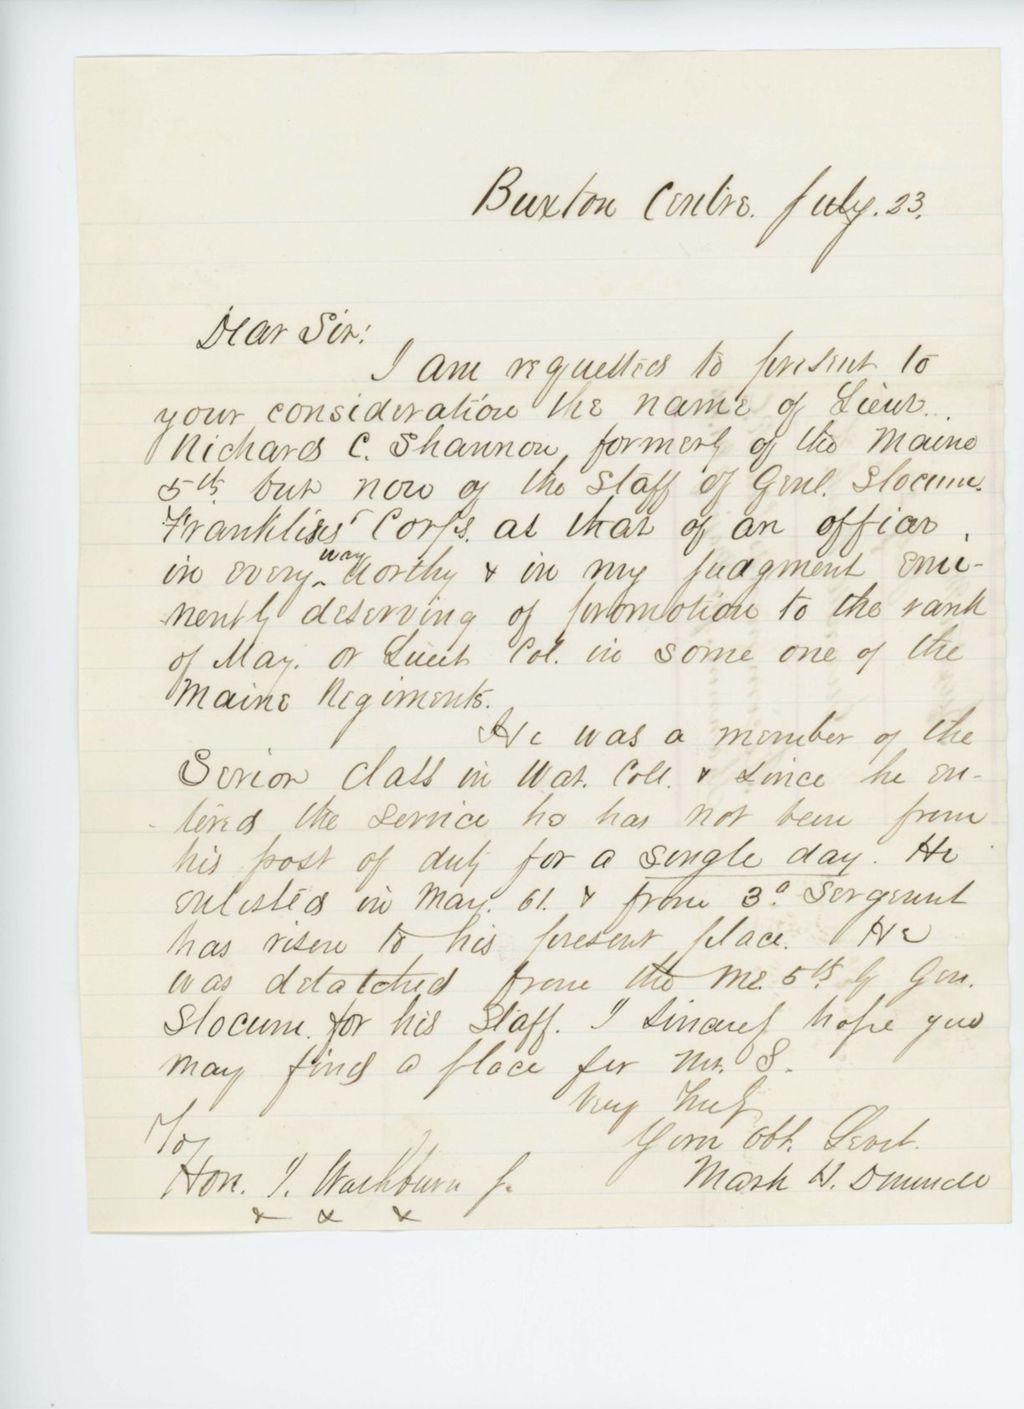 Buxton Centre. July. 23.
Dear Sir:
I am requested to present to
your consideration the name of Lieut.
Richard C. Shannon, formerly of the Maine
5th. but now of the Staff of Genl. Slocum.
Franklins' Corps. as that of an officer,
in every way worthy & in my judgment emi-
nently deserving of promotion to the rank
of Maj. or Lieut Col. in some one of the
Maine Regiments.
He was a member of the
Senior class in Wat. Coll. & since he en-
tered the service he has not been from
his post of duty for a single day. He
enlisted in May. 61. & from 3d Sergeant
has risen to his present place. He
was detatched from the Me. 5th. by Gen.
Slocum. for his Staff. I sincerely hope you
may find a place for Mr. S.
Very Truly
Your Obt. Servt.
Mark H. Dunnell
To,
Hon. I. Washburn Jr.
& & &